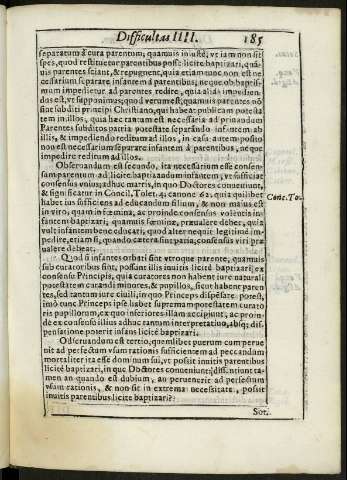 Difficultas IIII. 185
separatum à cura parentum; quamuis iniustè, vt iam non sit
spes, quod restituetur parentibus post: licitè baptizari, quã-
uis parentes sciant, & repugnent, quia etiam tunc non est ne-
cessarium separare infantem à parentibus, neque ob baptis-
mum impedietur ad parentes redire, quia aliàs impedien-
dus est, vt supponimus; quod verum est, quamuis parentes nõ
sint subditi principi Christiano, qui habeat publicam potesta
tem in illos, quia hæc tantum est necessaria ad priuandum
Parentes subditos patria potestate separãdo infantem ab
illis, & impediendo reditum ad illos, in casu autem posito
non est necessarium separare infantem à parentibus, neque
impedire reditum ad illos.
Obseruandum est secundo, ita necessarium esse consen-
sum parentum ad licitè baptizandum infantem, vt sufficiat
consensus vnius, adhuc matris, in quo Doctores conueniunt,
& significatur in Concil. Tolet. 4. canone 62. quia quilibet
habet ius sufficiens ad educandum filium, & non maius est
in viro, quam in fœmina, ac proinde consensus volentis in-
fantem baptizari, quamuis fœminæ, præualere debet, quia
vult infantem bene educari, quod alter nequit legitimè im-
pedire, etiam si, quando cætera sunt paria, consensus viri præ
ualere debeat.
Conc. To.
Quod si infantes orbati sint vtroque parente, quamuis
sub curatoribus sint, possunt illis inuitis licitè baptizari, ex
consensu Principis, quia curatores non habent iure naturali
potestatem curandi minores, & pupillos, sicut habent paren-
tes, sed tantum iure ciuili, in quo Princeps dispẽsare potest,
imò tunc Princeps ipse habet supremam potestatem curato
ris pupillorum, ex quo inferiores illam accipiunt, ac proin-
de ex consensu illius adhuc tantum interpretatiuo, absq; dis-
pensatione poterit infans licitè baptizari.
Obseruandum est tertio, quemlibet puerum cum perue
nit ad perfectum vsum rationis sufficientem ad peccandum
mortaliter ita esse dominum sui, vt possit inuitis parentibus
licitè baptizari, in quo Doctores conueniunt; dissentiunt ta-
men an quando est dubium, an peruenerit ad perfectum
vsum rationis, & non sit in extrema necessitate, possit
inuitis parentibus licitè baptizari?
Sot.